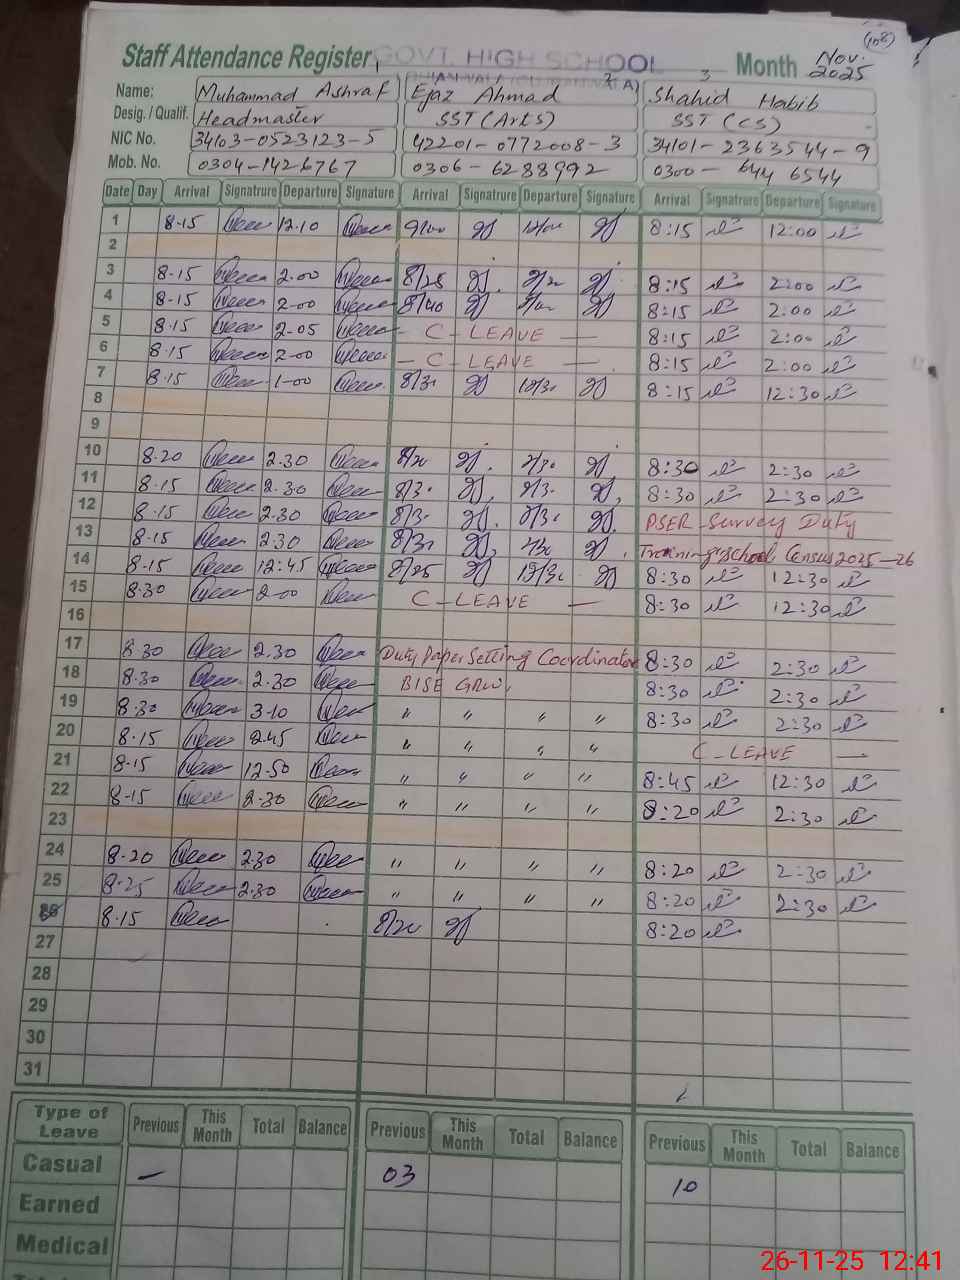 (108)
Staff Attendance Register GOVT. HIGH SCHOOL Month Nov. 2025
1 2 3
Name: Muhammad Ashraf Ejaz Ahmad Shahid Habib
Desig. / Qualif. Headmaster SST (Arts) SST (CS)
NIC No. 34103-0523123-5 42201-0772008-3 34101-2363544-9
Mob. No. 0304-1426767 0306-6288992 0300-644 6544
Date Day Arrival Signatrure Departure Signature Arrival Signatrure Departure Signature Arrival Signatrure Departure Signature
1 8-15 12.10 9/00 12/00 8:15 12:00
2
3 8-15 2-00 8/25 8:15 2:00
4 8-15 2-00 8/40 8:15 2:00
5 8-15 2-05 - C-LEAVE - 8:15 2:00
6 8-15 2-00 - C-LEAVE - 8:15 2:00
7 8-15 1-00 8/30 12/30 8:15 12:30
8
9
10 8-20 2.30 8/20 2/30 8:30 2:30
11 8-15 2.30 8/30 2/30 8:30 2:30
12 8-15 2.30 8/30 2/30 PSER-Survey Duty
13 8-15 2.30 8/30 2/30 Training School Census 2025-26
14 8-15 12:45 8/25 12/30 8:30 12:30
15 8-30 2-00 C-LEAVE - 8:30 12:30
16
17 8-30 2.30 Duty Paper Setting Coordinator 8:30 2:30
18 8-30 2-30 BISE GRW, 8:30 2:30
19 8-30 3-10 〃 〃 〃 〃 8:30 2:30
20 8-15 2.45 〃 〃 〃 〃 C-LEAVE -
21 8-15 12-50 〃 〃 〃 〃 8:45 12:30
22 8-15 2-30 〃 〃 〃 〃 8:20 2:30
23
24 8-20 2.30 〃 〃 〃 〃 8:20 2:30
25 8-25 2.30 〃 〃 〃 〃 8:20 2:30
26 8-15 8/20 8:20
27
28
29
30
31
Type of Leave Previous This Month Total Balance Previous This Month Total Balance Previous This Month Total Balance
Casual - 03 10
Earned
Medical
26-11-25 12:41